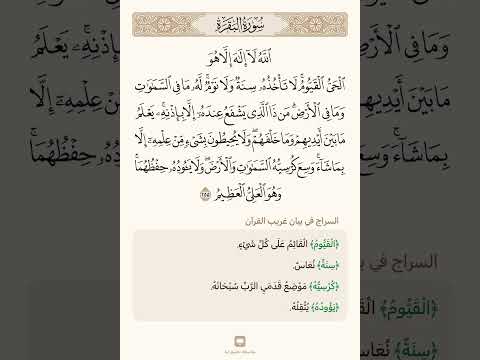 سُورَةُ البَقَرَةِ
ٱللَّهُ لَآ إِلَٰهَ إِلَّا هُوَ
ٱلْحَىُّ ٱلْقَيُّومُۚ لَا تَأْخُذُهُۥ سِنَةٌ وَلَا نَوْمٌۚ لَّهُۥ مَا فِى ٱلسَّمَٰوَٰتِ
وَمَا فِى ٱلْأَرْضِۗ مَن ذَا ٱلَّذِى يَشْفَعُ عِندَهُۥٓ إِلَّا بِإِذْنِهِۦۚ يَعْلَمُ
مَا بَيْنَ أَيْدِيهِمْ وَمَا خَلْفَهُمْۖ وَلَا يُحِيطُونَ بِشَىْءٍ مِّنْ عِلْمِهِۦٓ إِلَّا
بِمَا شَآءَۚ وَسِعَ كُرْسِيُّهُ ٱلسَّمَٰوَٰتِ وَٱلْأَرْضَۖ وَلَا يَـُٔودُهُۥ حِفْظُهُمَاۚ
وَهُوَ ٱلْعَلِىُّ ٱلْعَظِيمُ ٢٥٥
السراج في بيان غريب القرآن
﴿الْقَيُّومُ﴾ الْقَائِمُ عَلَى كُلِّ شَيْءٍ.
﴿سِنَةٌ﴾ نُعَاسٌ.
﴿كُرْسِيُّهُ﴾ مَوْضِعُ قَدَمَيِ الرَّبِّ سُبْحَانَهُ.
﴿يَؤُودُهُ﴾ يُثْقِلُهُ.